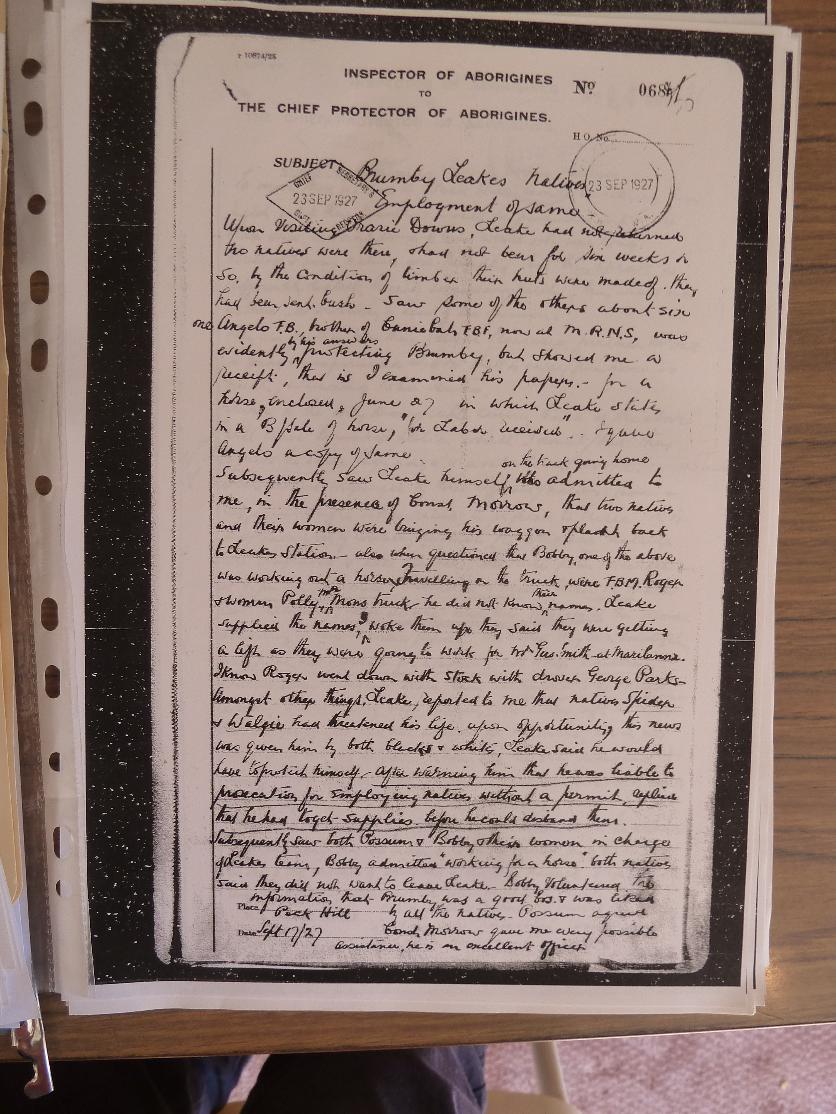 F 10874/25
INSPECTOR OF ABORIGINES
TO
THE CHIEF PROTECTOR OF ABORIGINES.
Nº 068
H O. No.
SUBJECT Brumby Leakes Natives
Employment of same
CHIEF SECRETARY'S
23 SEP 1927
23 SEP 1927
Upon Visiting Downs, Leake had not returned
two natives were there, & had not been for six weeks or
So, by the Condition of timber their huts were made of. they
had been sent bush – Saw some of the others about six
one Angelo F.B., brother of F.B.F, now at M.R.N.S, was
evidently by his answers protecting Brumby, but showed me a
receipt, that is I examined his papers – for a
horse, enclosed, June 27 in which Leake states
in a "B/Sale of horse," "for Labor received". I gave
Angelo a copy of same.
Subsequently saw Leake himself, on the track going home who admitted to
me, in the presence of Const. Morrow, that two natives
and their women were bringing his waggon & plant back
to Leakes Station – also when questioned that Bobby, one of the above
was working out a horse. Travelling on the truck, were F.B.M. Roger
& women Polly truck – he did not know their names. Leake
supplied the "names", woke them up, they said they were getting
a lift as they were going to work for Mr Geo. Smith at
I know Roger went down with Stock with drover George Parks –
Amongst other things, Leake, reported to me that natives Spider
& Walgie had threatened his life. upon opportunity, this news
was given him by both blacks & white, Leake said he would
have to protect himself – After warning him that he was liable to
prosecution for Employing natives without a permit, replied
that he had to get supplies before he could disband them.
Subsequently saw both Possum & Bobby & their women in charge
of Leakes team, Bobby admitted "working for a horse" both natives
said they did not want to leave Leake – Bobby Volunteered the
information that Brumby was a good boss & was liked
Place Peak Hill by all the natives – Possum agreed
Date Sept 17/27 Const. Morrow gave me every possible
assistance, he is an excellent officer